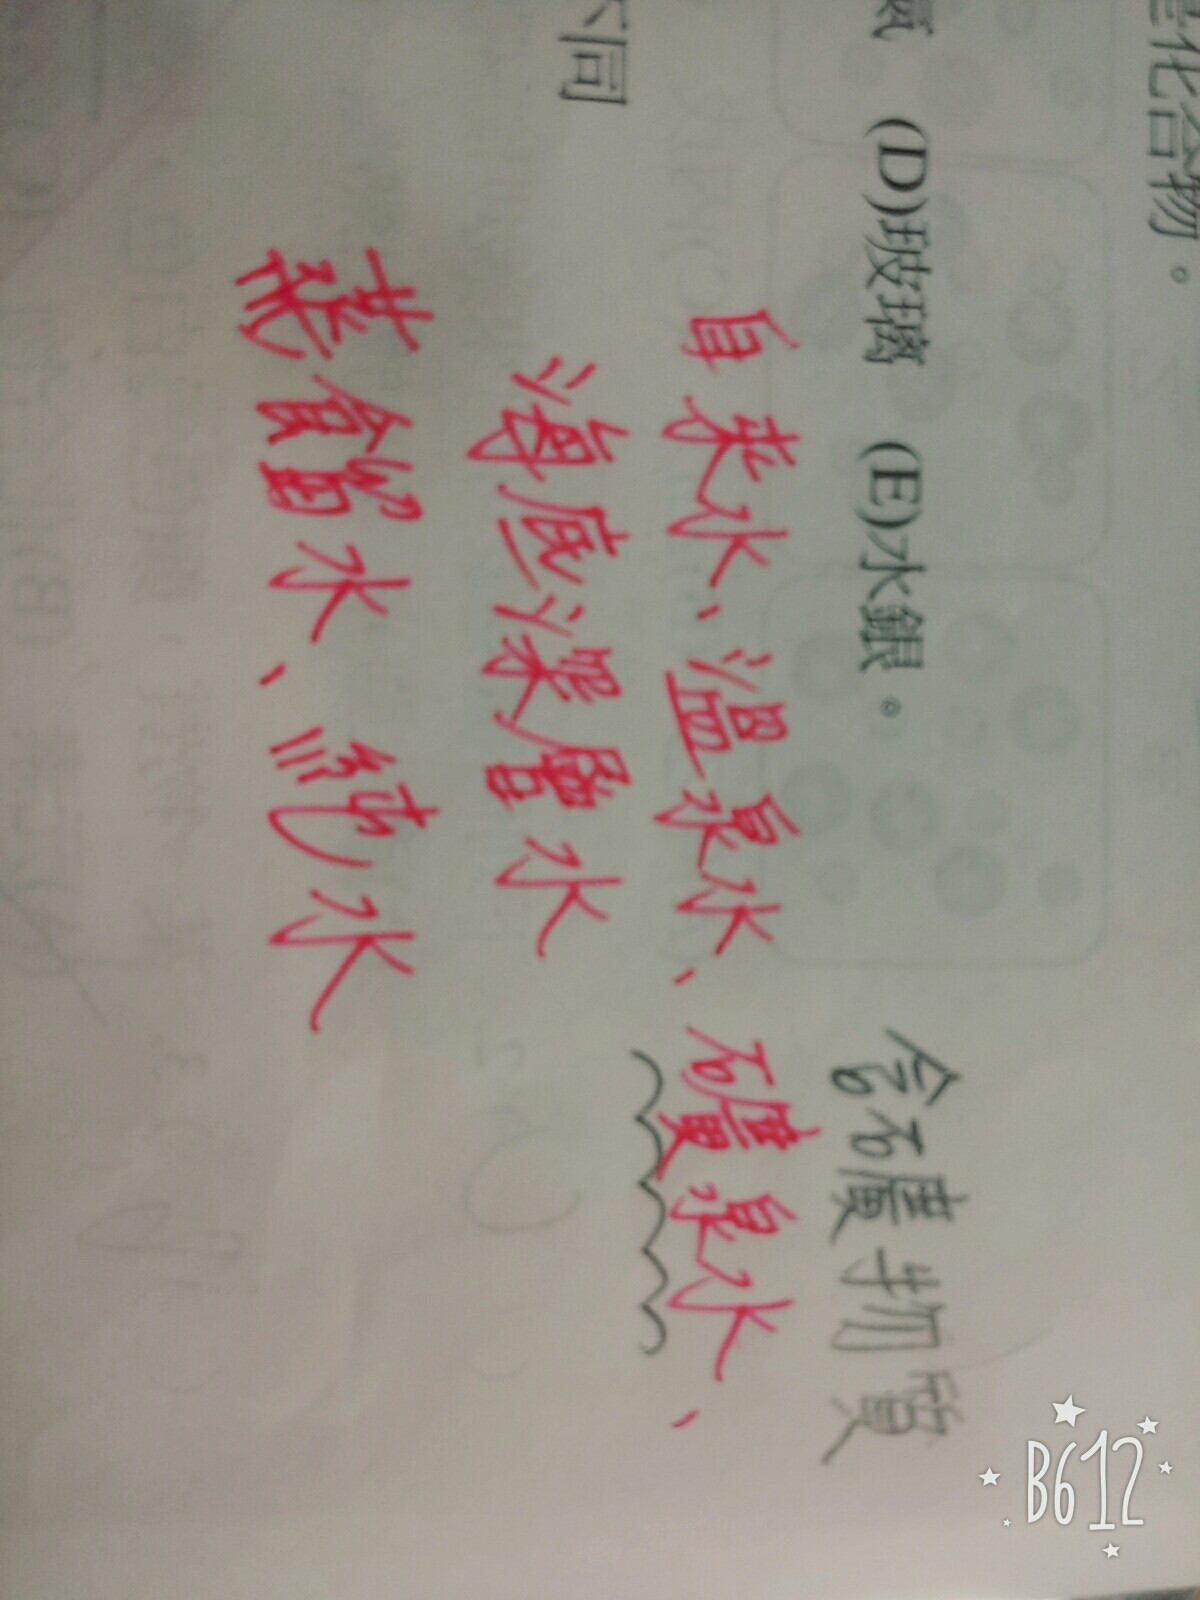 化合物。
(D)玻璃 (E)水銀。
含礦物質
自來水、溫泉水、礦泉水、
不同
海底深層水
蒸餾水、純水
B612